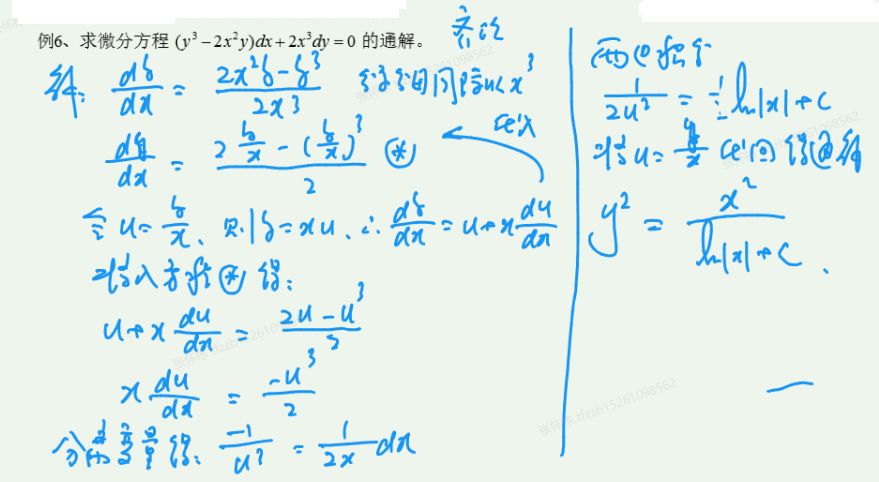 例6、求微分方程 (y³ − 2x²y)dx + 2x³dy = 0 的通解。 齐次
解: dy/dx = (2x²y − y³)/(2x³) 分子分母同除以x³
dy/dx = (2 y/x − (y/x)³)/2 ⊛ 代入
令 u = y/x、则 y = xu、∴ dy/dx = u + x du/dx
代入方程 ⊛ 得:
u + x du/dx = (2u − u³)/2
x du/dx = −u³/2
分离变量得: −1/u³ = 1/(2x) dx
两边积分
1/(2u²) = ½ ln|x| + C
将 u = y/x 代回得通解
y² = x²/(ln|x| + C).